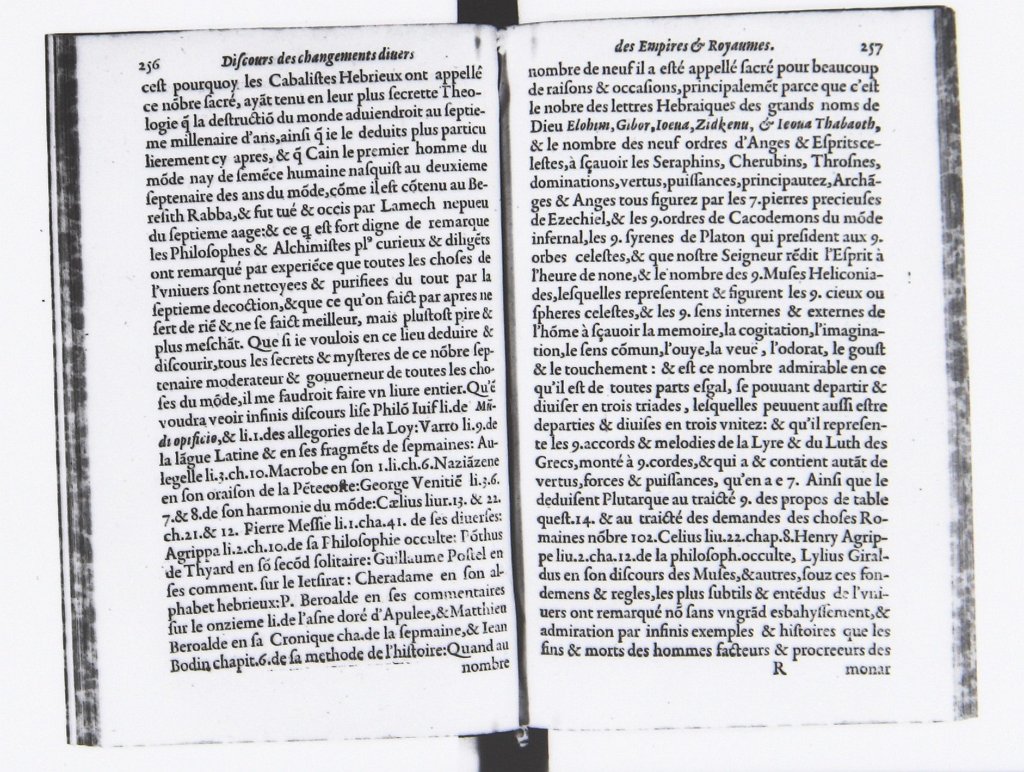 256 Discours des changements diuers
cest pourquoy les Cabalistes Hebrieux ont appellé
ce nõbre sacré, ayãt tenu en leur plus secrette Theo-
logie q̃ la destructiõ du monde aduiendroit au septie-
me millenaire d'ans, ainsi q̃ ie le deduits plus particu
lierement cy apres, & q̃ Cain le premier homme du
mõde nay de seméce humaine nasquist au deuxieme
septenaire des ans du mõde, cõme il est cõtenu au Be-
resith Rabba, & fut tué & occis par Lamech nepueu
du septieme aage: & ce q̃ est fort digne de remarque
les Philosophes & Alchimistes pl⁹ curieux & diligẽts
ont remarqué par experiéce que toutes les choses de
l'vniuers sont nettoyees & purifiees du tout par la
septieme decoction, & que ce qu'on faict par apres ne
sert de riẽ & ne se faict meilleur, mais plustost pire &
plus meschãt. Que si ie voulois en ce lieu deduire &
discourir, tous les secrets & mysteres de ce nõbre sep-
tenaire moderateur & gouuerneur de toutes les cho-
ses du mõde, il me faudroit faire vn liure entier. Qu'ẽ
voudra veoir infinis discours lise Philõ Iuif li. de Mũ-
di opificio, & li.1. des allegories de la Loy: Varro li.9. de
la lãgue Latine & en ses fragmẽts de sepmaines: Au-
legelle li.3. ch.10. Macrobe en son 1. li. ch.6. Naziãzene
en son oraison de la Pẽtecoste: George Venitiẽ li.3.6.
7. & 8. de son harmonie du mõde: Cælius liur.13. & 22.
ch.21. & 12. Pierre Messie li.1. cha.41. de ses diuerses:
Agrippa li.2. ch.10. de sa Philosophie occulte: Põthus
de Thyard en sõ secõd solitaire: Guillaume Postel en
ses comment. sur le Ietsirat: Cheradame en son al-
phabet hebrieux: P. Beroalde en ses commentaires
sur le onzieme li. de l'asne doré d'Apulee, & Matthieu
Beroalde en sa Cronique cha. de la sepmaine, & Iean
Bodin chapit.6. de sa methode de l'histoire: Quand au
nombre
des Empires & Royaumes. 257
nombre de neuf il a esté appellé sacré pour beaucoup
de raisons & occasions, principalemẽt parce que c'est
le nobre des lettres Hebraiques des grands noms de
Dieu Elohim, Gibor, Ioeua, Zidkenu, & Ieoua Thabaoth,
& le nombre des neuf ordres d'Anges & Esprits ce-
lestes, à sçauoir les Seraphins, Cherubins, Throsnes,
dominations, vertus, puissances, principautez, Archã-
ges & Anges tous figurez par les 7. pierres precieuses
de Ezechiel, & les 9. ordres de Cacodemons du mõde
infernal, les 9. syrenes de Platon qui president aux 9.
orbes celestes, & que nostre Seigneur rẽdit l'Esprit à
l'heure de none, & le nombre des 9. Muses Heliconia-
des, lesquelles representent & figurent les 9. cieux ou
spheres celestes, & les 9. sens internes & externes de
l'hõme à sçauoir la memoire, la cogitation, l'imagina-
tion, le sens cõmun, l'ouye, la veuë, l'odorat, le goust
& le touchement: & est ce nombre admirable en ce
qu'il est de toutes parts esgal, se pouuant departir &
diuiser en trois triades, lesquelles peuuent aussi estre
departies & diuises en trois vnitez: & qu'il represen-
te les 9. accords & melodies de la Lyre & du Luth des
Grecs, monté à 9. cordes, & qui a & contient autãt de
vertus, forces & puissances, qu'en a e 7. Ainsi que le
deduisent Plutarque au traicté 9. des propos de table
quest.14. & au traicté des demandes des choses Ro-
maines nõbre 102. Celius liu.22. chap.8. Henry Agrip-
pe liu.2. cha.12. de la philosoph. occulte, Lylius Giral-
dus en son discours des Muses, & autres, souz ces fon-
demens & regles, les plus subtils & entẽdus de l'vni-
uers ont remarqué nõ sans vn grãd esbahyssement, &
admiration par infinis exemples & histoires que les
fins & morts des hommes facteurs & procreeurs des
R monar